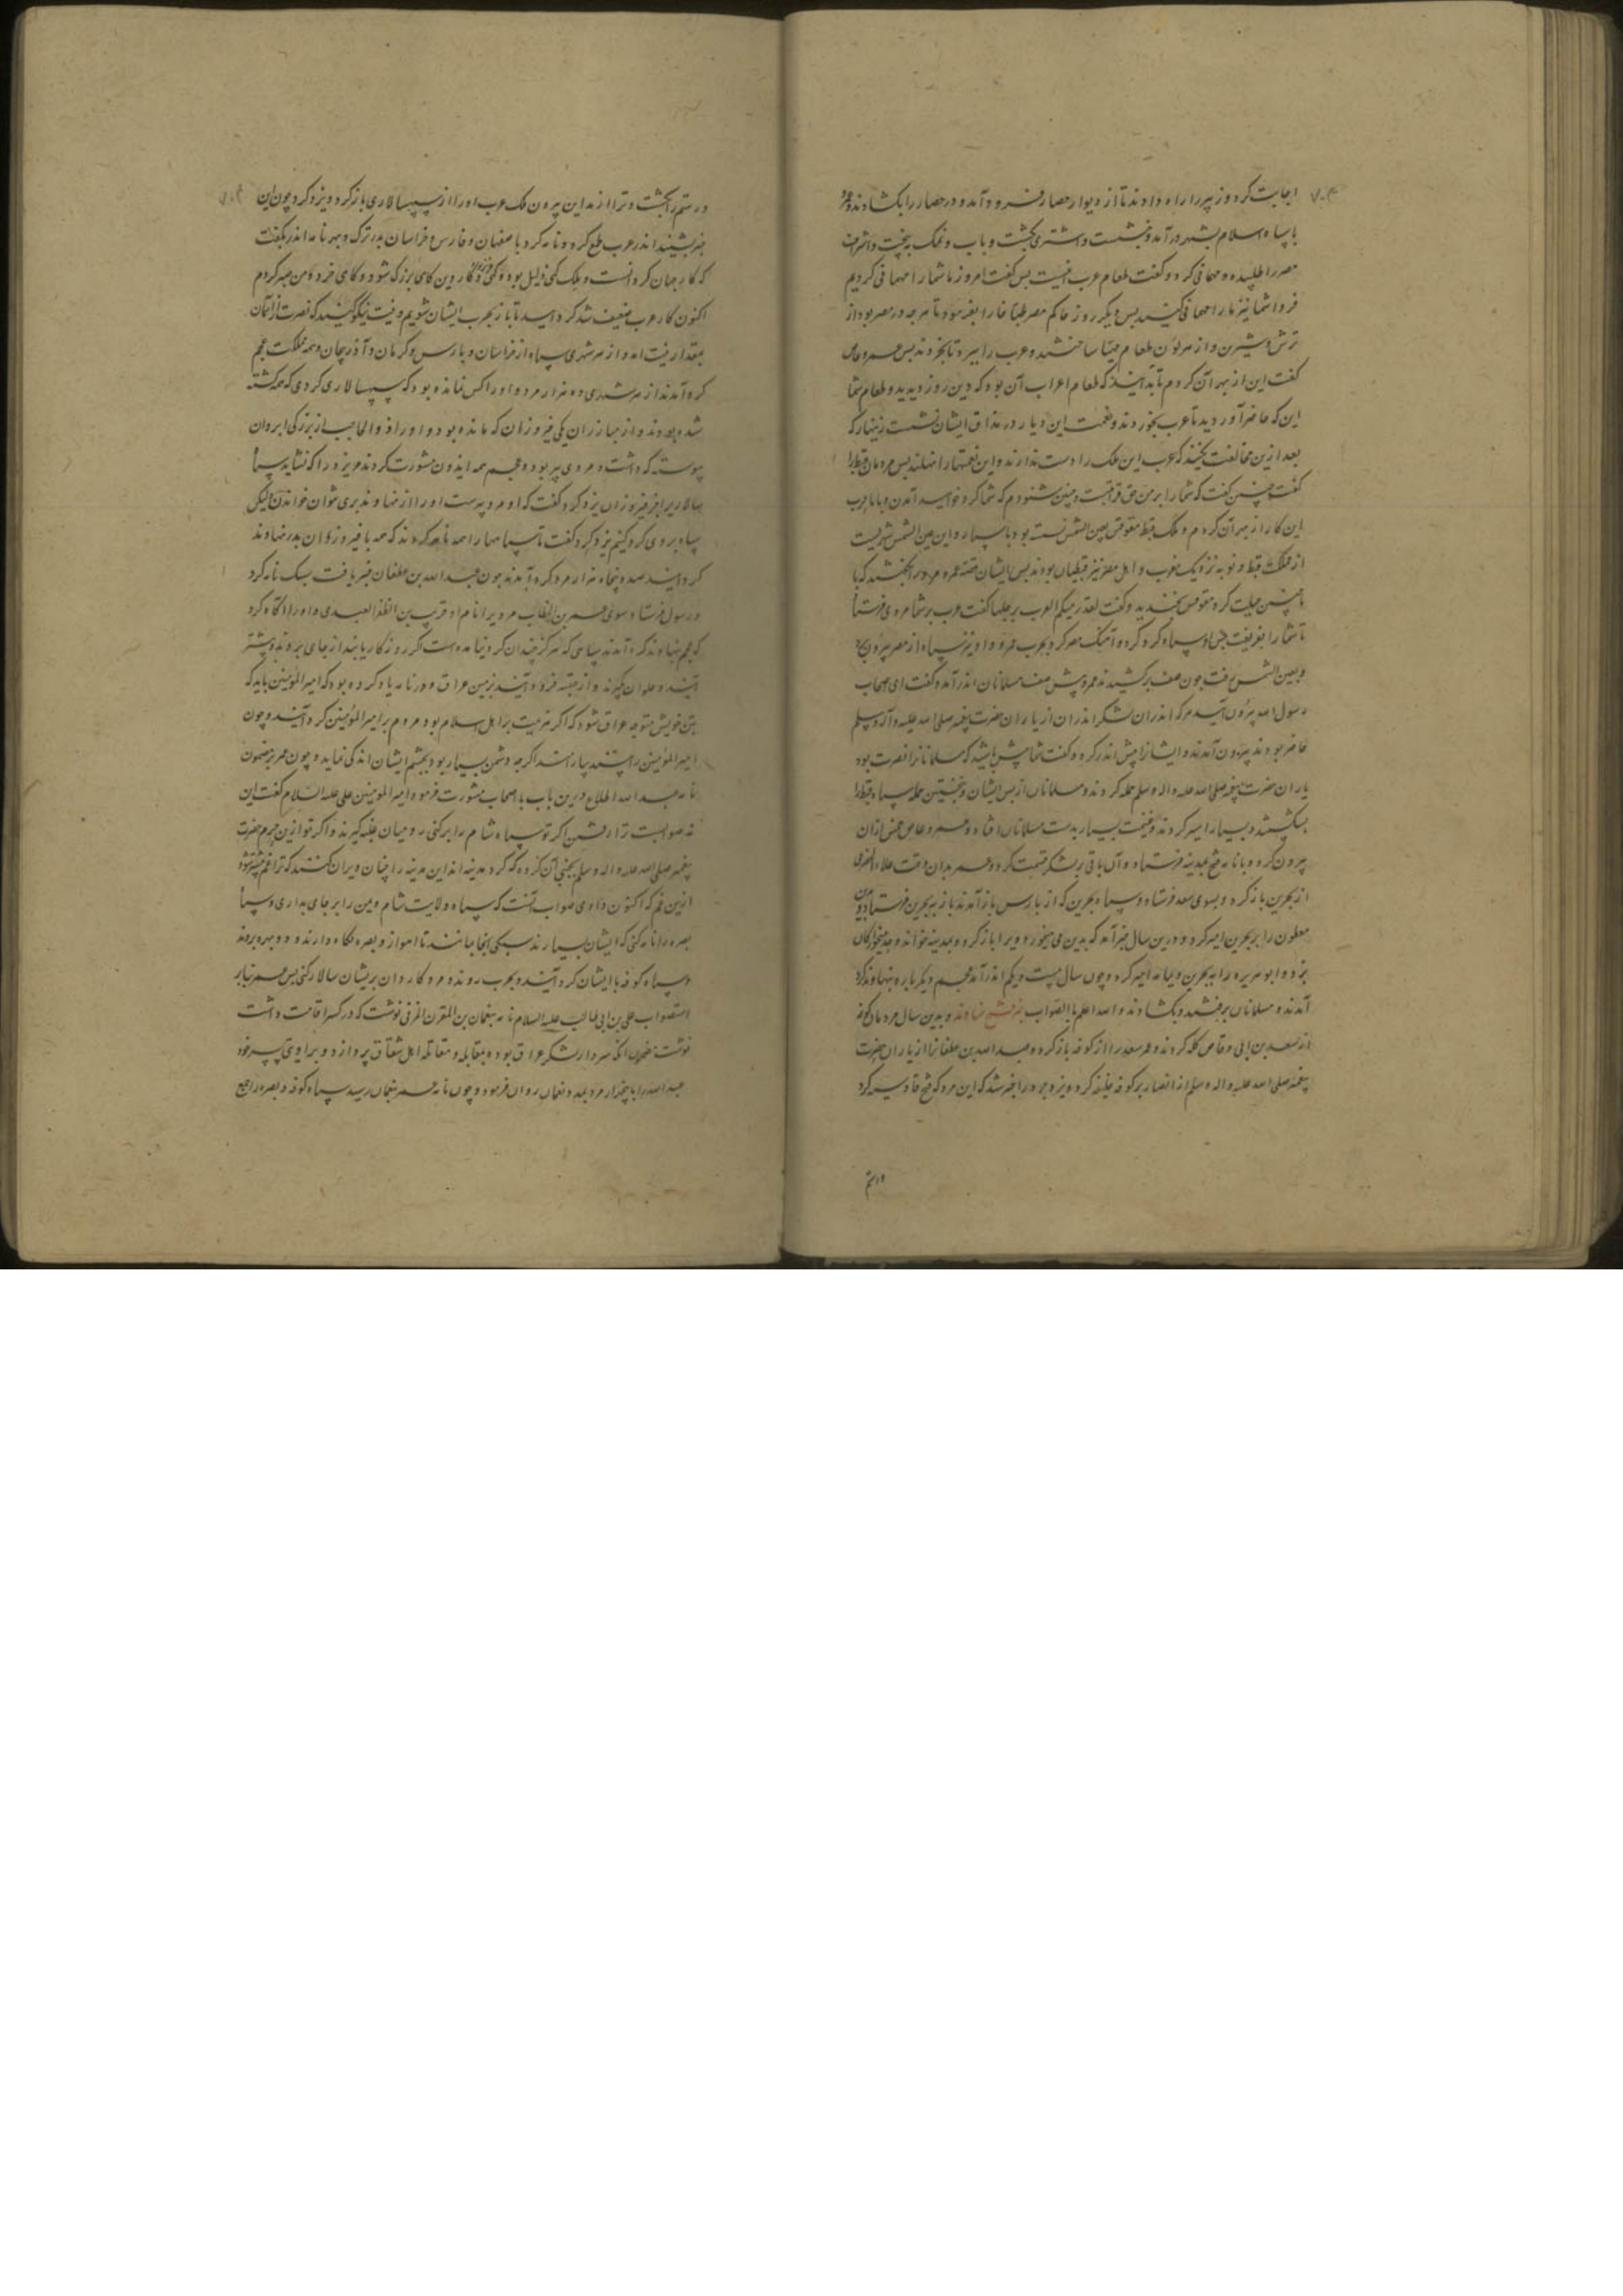 اجابت کرد و زبیر را راه دادند تا از دیوار حصار فرود آمد و در حصار را بکشادند و عمرو
با سپاه اسلام بشهر در آمد و بنشست و اشتری بکشت و باب و نمک بپخت و اشراف
مصر را طلبیده و مهمانی کرد و گفت طعام عرب اینست پس گفت امروز ما شما را مهمانی کردیم
فردا شما نیز ما را مهمانی کنید پس دیگر روز حاکم مصر طباخان را بفرمود تا هر چه در مصر بود از
ترش و شیرین و از هر لون طعام مهیا ساختند و عرب را ببرد تا بخوردند پس عمرو عاص
گفت این از بهر آن کردم تا بدانید که طعام اعراب آن بود که دین روز دیدید و طعام شما
این که حاضر آوردید تا عرب بخوردند و نعمت این دیار در مذاق ایشان نشست زینهار که
بعد ازین مخالفت نکنید که عرب این ملک را دست ندارند و این نعمتها را نهلند پس مردمان قبط را
گفت چنین گفت که شما را بر من حق قرابتست و چنین شنودم که شما گرد خواسید آمدن و با ما حرب
این کار از بهر آن کردم و ملک قبط مقوقس بعین الشمس نشسته بود با سپاه و این عین الشمس شهریست
از مملکت قبط و نوبه نزدیک مغرب و اهل مصر نیز قبطیان بودند پس ایشان قصه عمرو
چنین حیلت کرد مقوقس بخندید و گفت لقد رمیکم العرب برجلها گفت عرب بر شما مردی فرستاد
تا شما را بفریفت پس او سپاه گرد کرد و آهنگ مصر کرد بحرب عمرو و او نیز سپاه از مصر بیرون
و بعین الشمس رفت چون صف برکشیدند عمرو پیش صف مسلمانان اندر آمد و گفت ای اصحاب
رسول الله بیرون آیید هر که اندران لشکر اندران از یاران حضرت پیغمبر صلی الله علیه و آله وسلم
حاضر بودند بیرون آمدند و ایشانرا پیش اندر کرد و گفت شما پیش باشید که مسلمانانرا نصرت بود
یاران حضرت پیغمبر صلی الله علیه واله وسلم حمله کردند و مسلمانان از پس ایشان و نخستین حمله سپاه قبط را
بشکستند و بسیار اسیر کردند و غنیمت بسیار بدست مسلمانان افتاد و عمرو عاص خمس ازان
بیرون کرد و با نامه فتح بمدینه فرستاد و آن باقی بر لشکر قسمت کرد و عمر بدان وقت علاء الحضرمی
از بحرین باز کرد و بسوی سعد فرستاد و سپاه بحرین که از پارس باز آمدند باز به بحرین فرستاد
مظعون را بر بحرین امیر کرد و درین سال خبر آمد که بدین می میخورد و ویرا باز کرد و بمدینه خواند و حد میخوارگان
بزد و ابو هریره را به بحرین و یمامه امیر کرد و چون سال بیست و یکم اندر آمد عجم دیگر باره بنهاوند گرد
آمدند و مسلمانان برفتند و بکشادند والله اعلم باالصواب خبر فتح نهاوند و بدین سال مردمان کوفه
از سعد بن ابی وقاص گله کردند و عمر سعد را از کوفه باز کرد و عبد الله بن عتبان را از یاران حضرت
پیغمبر صلی الله علیه واله وسلم از انصار بر کوفه خلیفه کرد و یزدجرد را خبر شد که این مرد که فتح قادسیه کرد
و رستم
و رستم را بکشت و ترا از مداین بیرون ملک عرب او را از سپهسالاری باز کرد و یزدگرد چون این
خبر بشنید اندر عرب طمع کرد و نامه کرد با صفهان و فارس و خراسان بدر ترک و بهر نامه اندر بگفت
که کار جهان گردانست و ملک گهی ذلیل بود و گهی عزیز و کار دین گاهی بزرگ شود و گاهی خرد و من صبر کردم
اکنون کار عرب ضعیف شد گرد آیید تا باز بحرب ایشان شویم و نیت نیکو کنید که نصرت از آسمان
بمقدار نیت آمد و از هر شهری سپاه از خراسان و پارس و کرمان و آذربیجان و همه مملکت عجم
گرد آمدند از هر شهری ده هزار مرد و او را کس نمانده بود که سپهسالاری کردی که همه کشته
شده بودند و از مبارزان یکی فیروزان که مانده بود و او را ذوالحاجب از بزرگی ابروان
پیوسته که داشت و مردی پیر بود و عجم همه ایدون مشورت کردند مر یزد را که نشاید سپاه
سالاری را بجز فیروزان یزدگرد گفت که او مرد پیرست او را از نهاوند بدری نتوان خواندن لیکن
سپاه بر وی گرد کنیم یزدگرد گفت تا سپاهها را همه نامه کردند که همه با فیروزان بدر نهاوند
گرد آیند صد و پنجاه هزار مرد گرد آمدند چون عبد الله بن عتبان خبر یافت سبک نامه کرد
و رسول فرستاد سوی عمر بن الخطاب مردیرا نام او قریب بن الظفر العبدی و او را آگاه کرد
که عجم بنهاوند گرد آمدند سپاهی که هرگز چندان گرد نیامده است اگر روزگار یابند از جای بروند و پیشتر
آیند و حلوان بگیرند و از عقبه فرود آیند بزمین عراق و در نامه یاد کرده بود که امیر المؤمنین باید که
بتن خویش متوجه عراق شود که اگر هزیمت بر اهل اسلام بود مردم بر امیر المؤمنین گرد آیند و چون
امیر المؤمنین را بینند اگر چه دشمن بسیار بود بچشم ایشان اندکی نماید و چون عمر بر مضمون
نامه عبد الله اطلاع درین باب با اصحاب مشورت فرمود امیر المومنین علی علیه السلام گفت این
نه صوابست ترا رفتن اگر تو سپاه شام را برکنی رومیان غلبه گیرند و اگر تو ازین حرم حضرت
پیغمبر صلی الله علیه واله وسلم بجنبی آن گروه که گرد مدینه اند این مدینه را چنان ویران کنند که ترا غم بیشتر شود
ازین غم که اکنون داری صواب آنست که سپاه ولایت شام و یمن را بر جای بداری و سپاه
بصره را نامه کنی که ایشان بسیارند سبکی انجا بمانند تا اهواز و بصره نگاه دارند و دو بهره بروند
و سپاه کوفه با ایشان گرد آیند و بحرب روند و مرد کاردان بریشان سالار کنی پس عمر بنابر
استصواب علی بن ابی طالب علیه السلام نامه بنعمان بن المقرن المزنی نوشت که در کسکر اقامت داشت
نوشت مضمون آنکه سردار لشکر عراق بوده بمقابله و مقاتله اهل شقاق پردازد و برا وی پسر خود
عبد الله را با پنجهزار مرد بمدد نعمان روان فرمود و چون نامه عمر بنعمان رسید سپاه کوفه و بصره را جمع